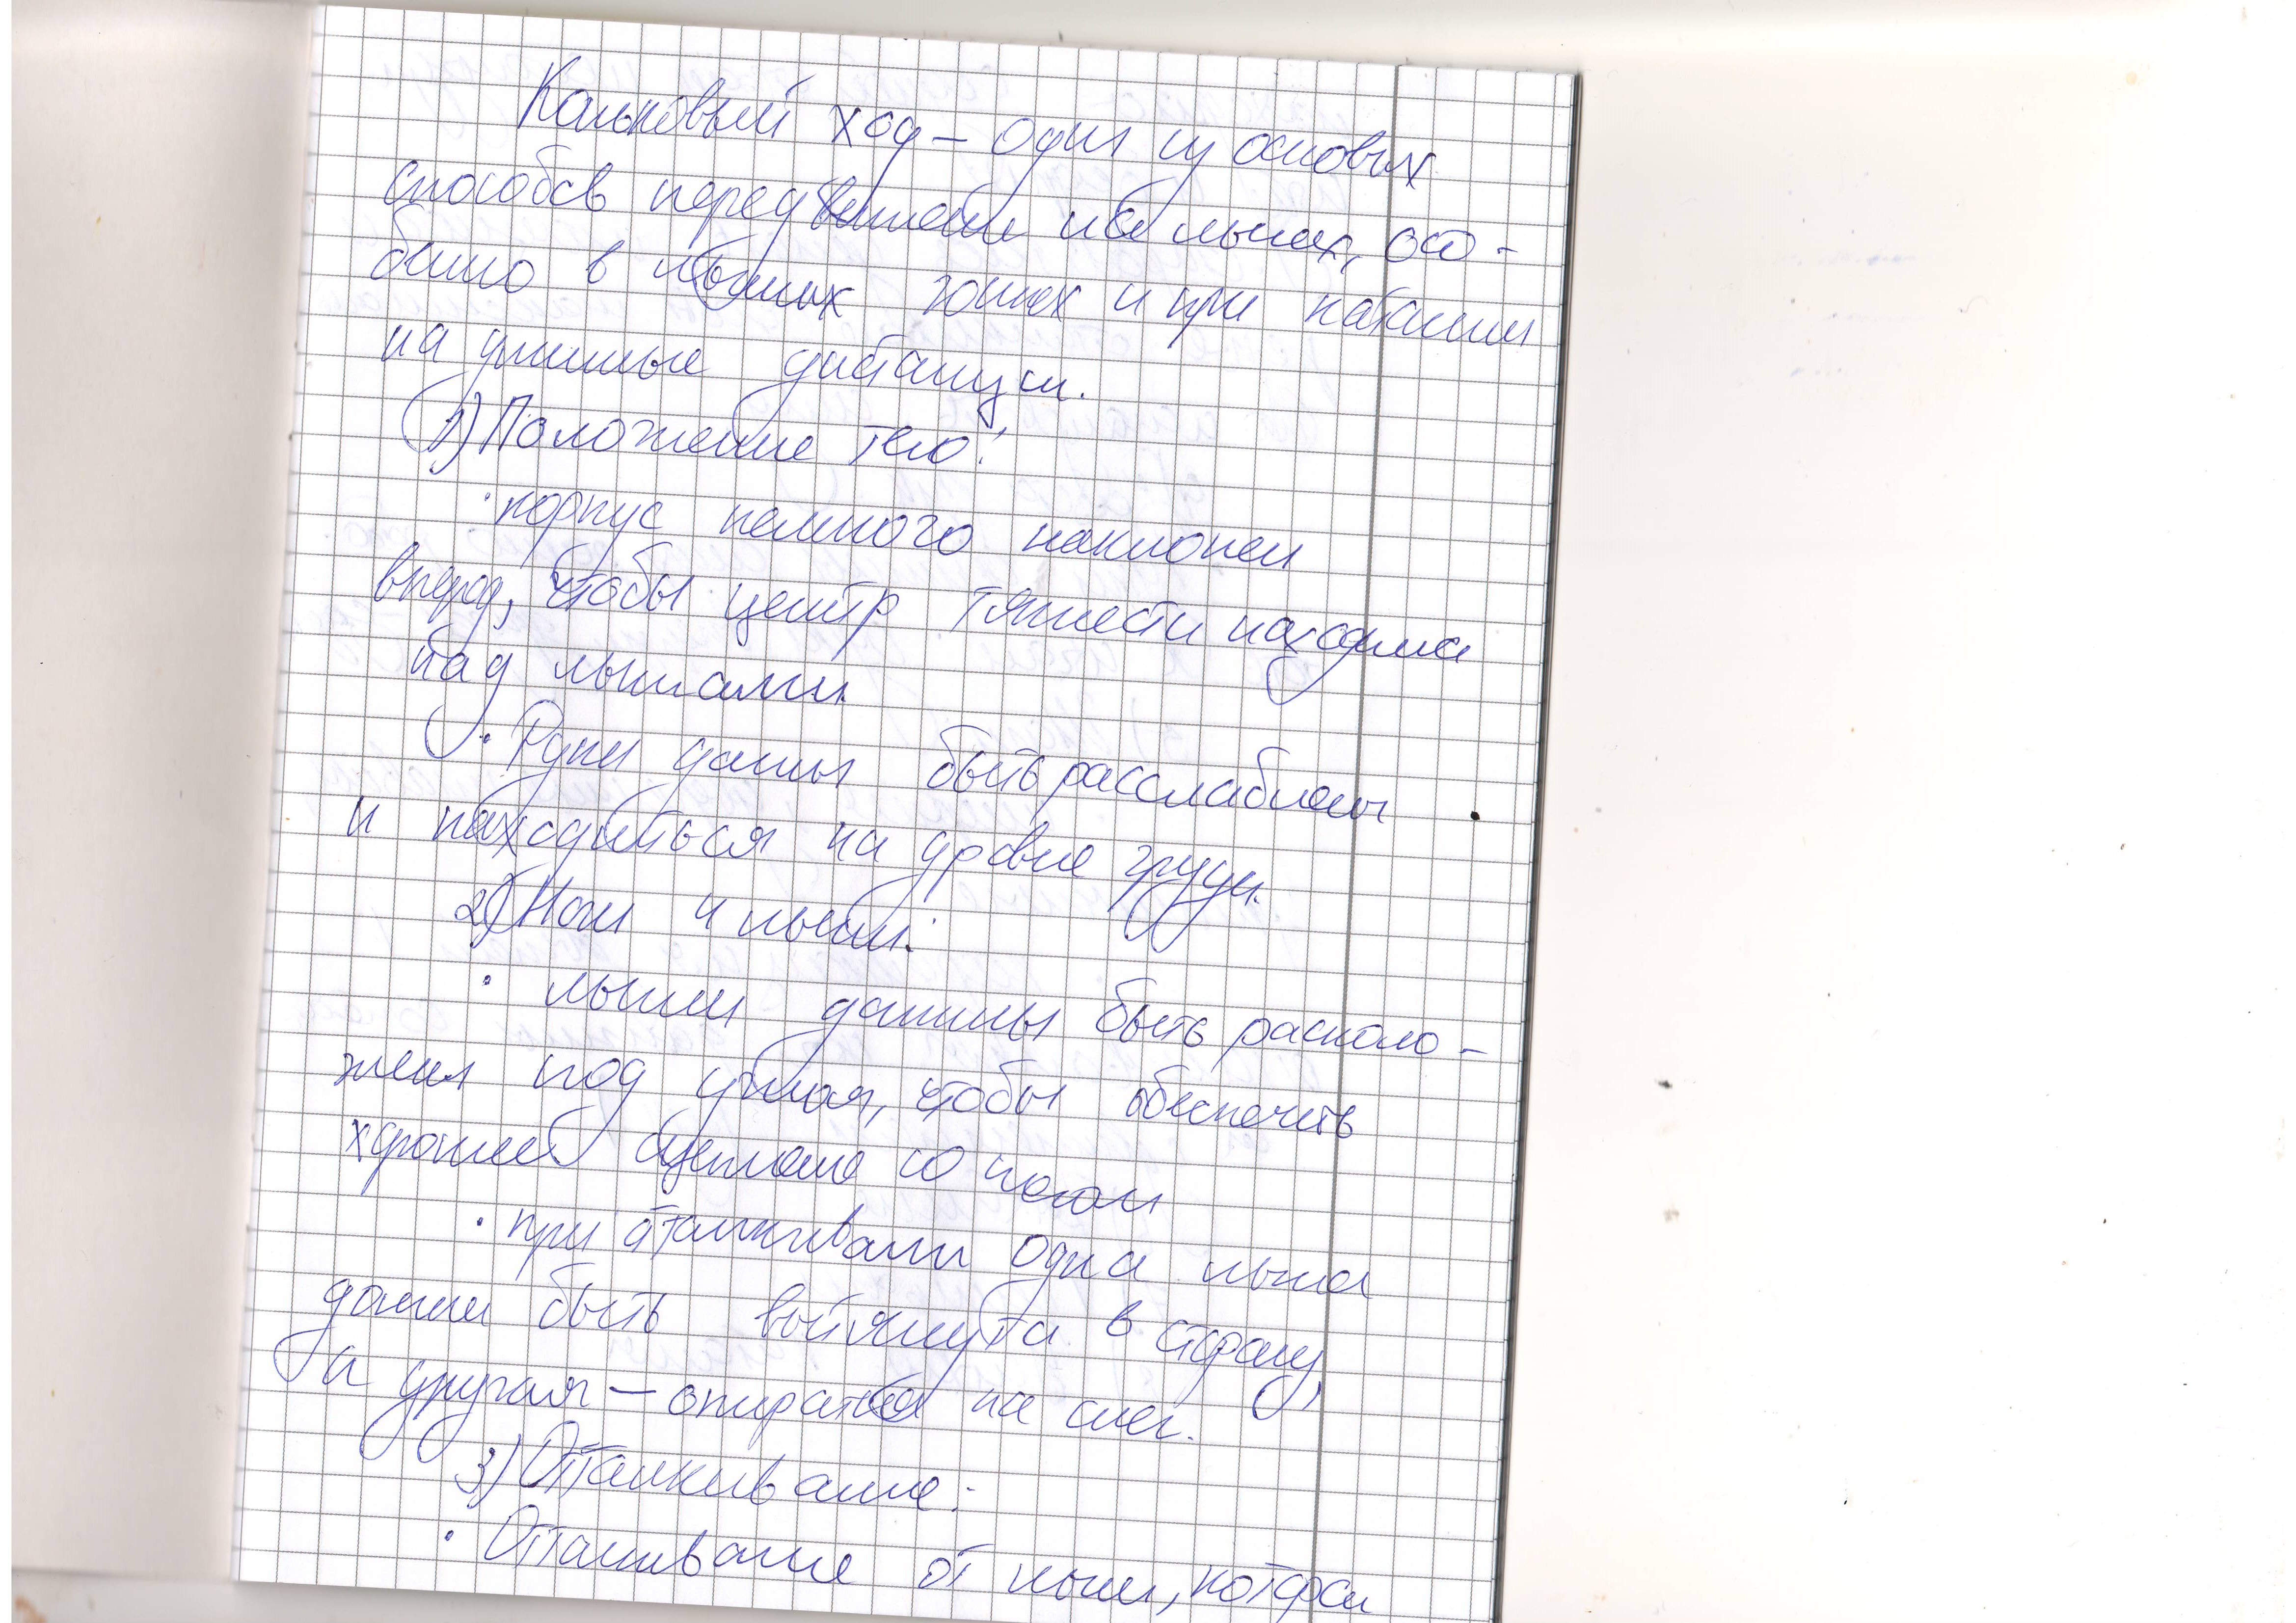 Коньковый ход – один из основных
способов передвижения на лыжах, осо-
бенно в лыжных гонках и при катании
на длинные дистанции.
1) Положение тела:
· корпус немного наклонен
вперед, чтобы центр тяжести находился
над лыжами
· Руки должны быть расслаблены
и находиться на уровне груди.
2) Ноги и лыжи:
· лыжи должны быть располо-
жены под углом, чтобы обеспечить
хорошее сцепление со
· при отталкивании одна лыжа
должна быть вытянута в сторону,
а другая – опираться на снег.
3) Отталкивание:
· Отталкивание от лыжи, которая